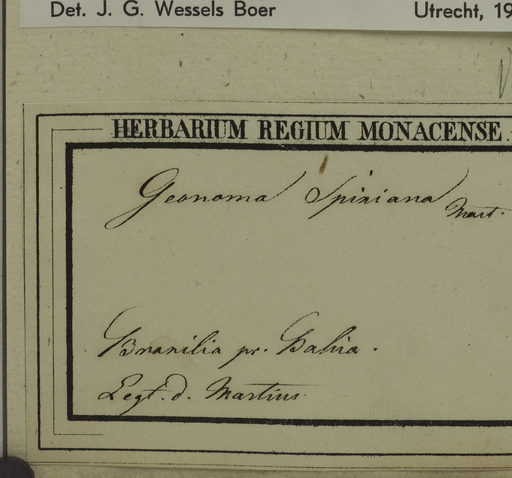 Det. J. G. Wessels Boer Utrecht, 19
HERBARIUM REGIUM MONACENSE.
Geonoma Spixiana Mart.
Brasilia pr. Bahia.
Legt. d. Martius.